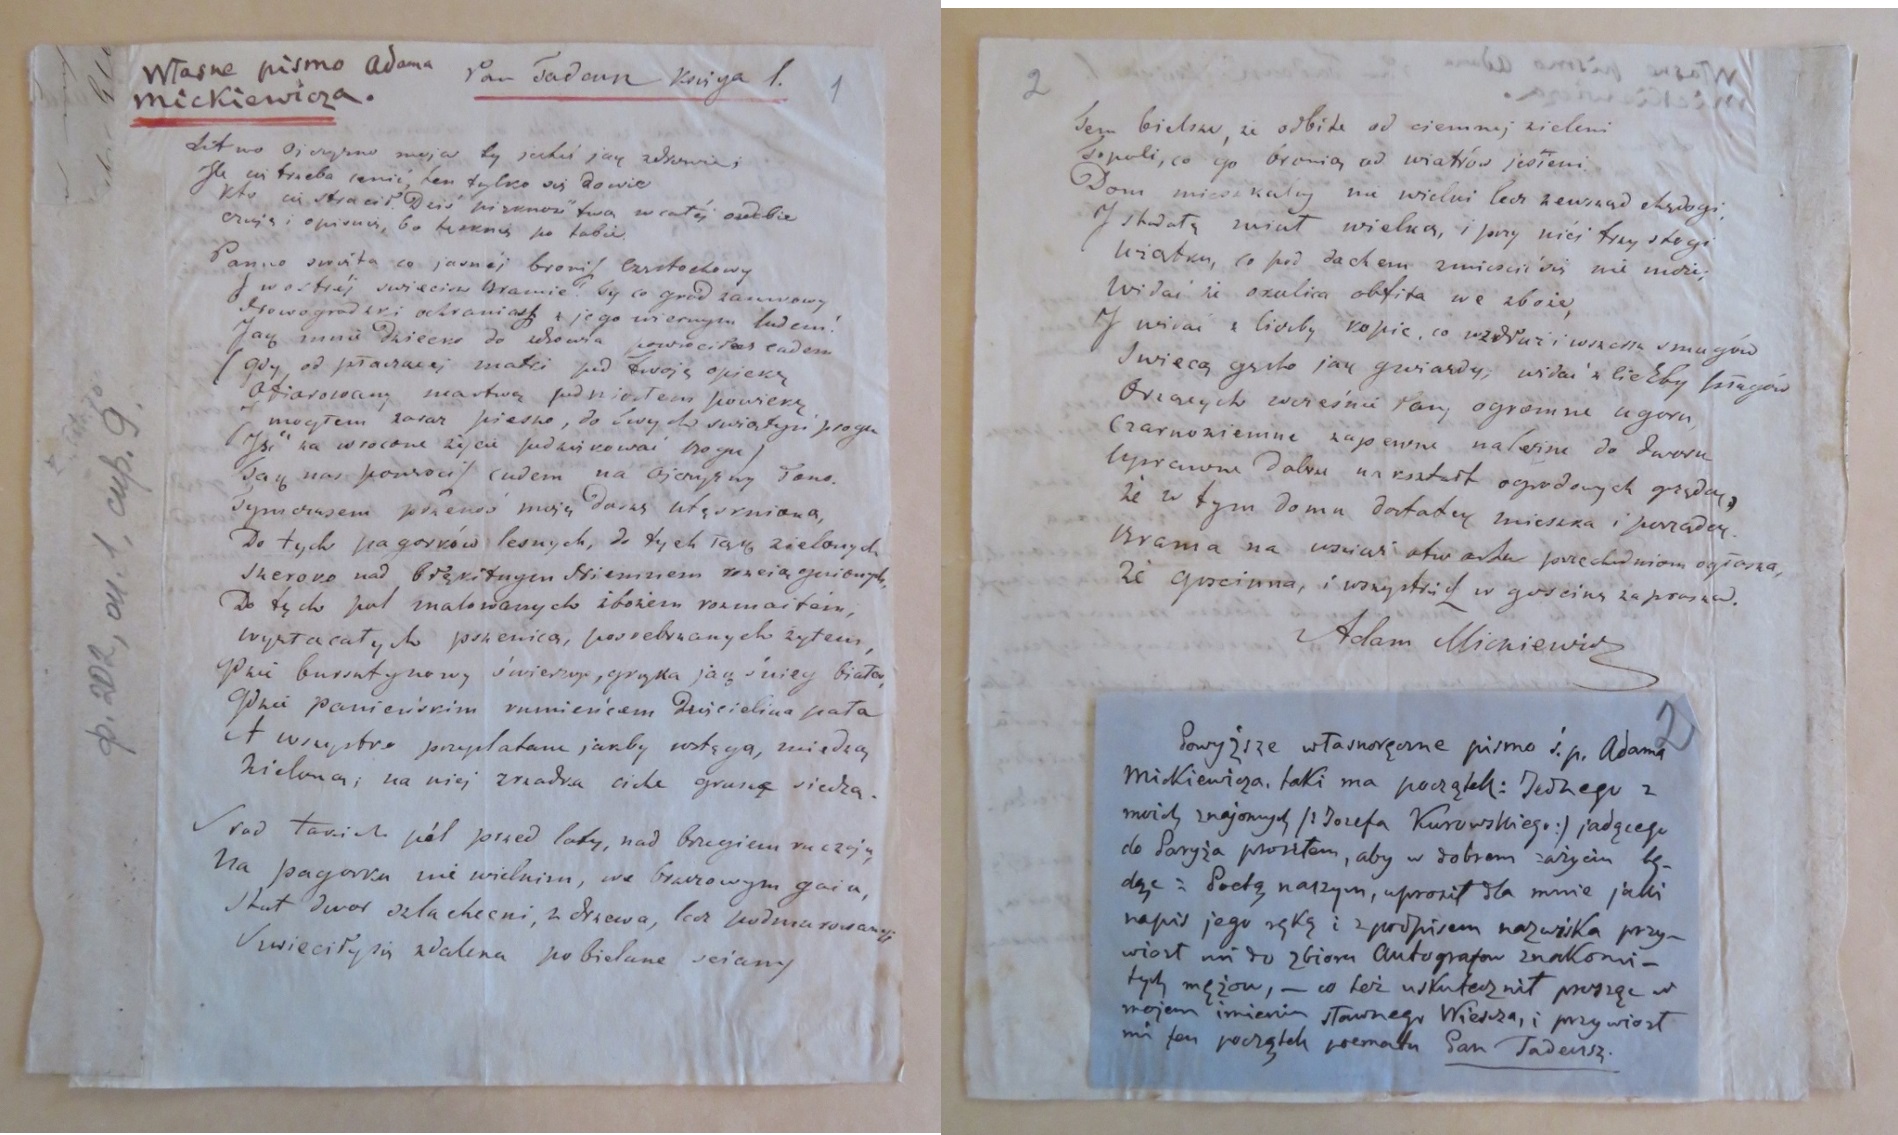 Własne pismo Adama
Mickiewicza.
Pan Tadeusz Księga 1.
1
Litwo Ojczyzno moja ty jesteś jak zdrowie;
Ile cię trzeba cenić, ten tylko się dowie
Kto cię stracił. Dziś piękność twą w całéj ozdobie
Czuję i opisuję, bo tęsknię po tobie.
Panno święta co jasnéj bronisz Częstochowy
I w ostréj świecisz Bramie! Ty co gród zamkowy
Nowogródzki ochraniasz z jego wiernym ludem!
Jak mnie dziecko do zdrowia powróciłaś cudem
(Gdy, od płaczącéj matki pod Twoją opiekę
Ofiarowany martwą podniosłem powiekę
I mogłem zaraz pieszo, do Twych świątyń progu
Iść za wrócone życie podziękować Bogu)
Tak nas powrócisz cudem na Ojczyzny łono.
Tymczasem przenoś moją duszę utęsknioną,
Do tych pagórków leśnych, do tych łąk zielonych
Szeroko nad błękitnym Niemnem rozciągnionych,
Do tych pól malowanych zbożem rozmaitém,
Wyzłacałych pszenicą, posrebrzanych żytem,
Gdzie bursztynowy świerzop, gryka jak śnieg biała,
Gdzie panieńskim rumieńcem dzięcielina pała
A wszystko przeplatane jakby wstęgą, miedzą
Zieloną; na niej zrzadka ciche grusze siedzą.
Śród takich pól przed laty, nad brzegiem ruczaju,
Na pagórku nie wielkim, we brzozowym gaju,
Stał dwor szlachecki, z drzewa, lecz podmurowany
Swieciły się zdaleka pobielane sciany
ф. 202, оп. 1, спр. 9.
2
Tem bielsze, że odbite od ciemnej zieleni
Topoli, co go bronią od wiatrów jesieni.
Dom mieszkalny nie wielki lecz zewsząd chędogi,
I stodołę miał wielką, i przy niéj trzy stogi
Użątku, co pod dachem zmieścić się nie może;
Widać że okolica obfita we zboże,
I widać z liczby kopic, co wzdłuż i wszesz smugów
Swiecą gęsto jak gwiazdy; widać z liczby pługów
Orzących wcześnie łany ogromne ugoru,
Czarnoziemne zapewne należne do dworu
Uprawne dobrze nakształt ogrodowych grządek,
Że w tym domu dostatek mieszka i porządek.
Brama na wciąż otwarta przechodniom ogłasza,
Że gościnna, i wszystkich w gościnę zaprasza.
Adam Mickiewicz
2
Powyższe własnoręczne pismo ś.p. Adama
Mickiewicza, taki ma początek: Jednego z
moich znajomych /: Jozefa Kurowskiego:/ jadącego
do Paryża prosiłem, aby w dobrem zażyciu bę-
dąc z Poetą naszym, uprosił dla mnie jaki
napis jego ręką i z podpisem nazwiska przy-
wiozł mi do zbioru Autografow znakomi-
tych mężow, — co też uskutecznił prosząc w
mojem imieniu sławnego Wieszcza, i przywiozł
mi ten początek poematu Pan Tadeusz.